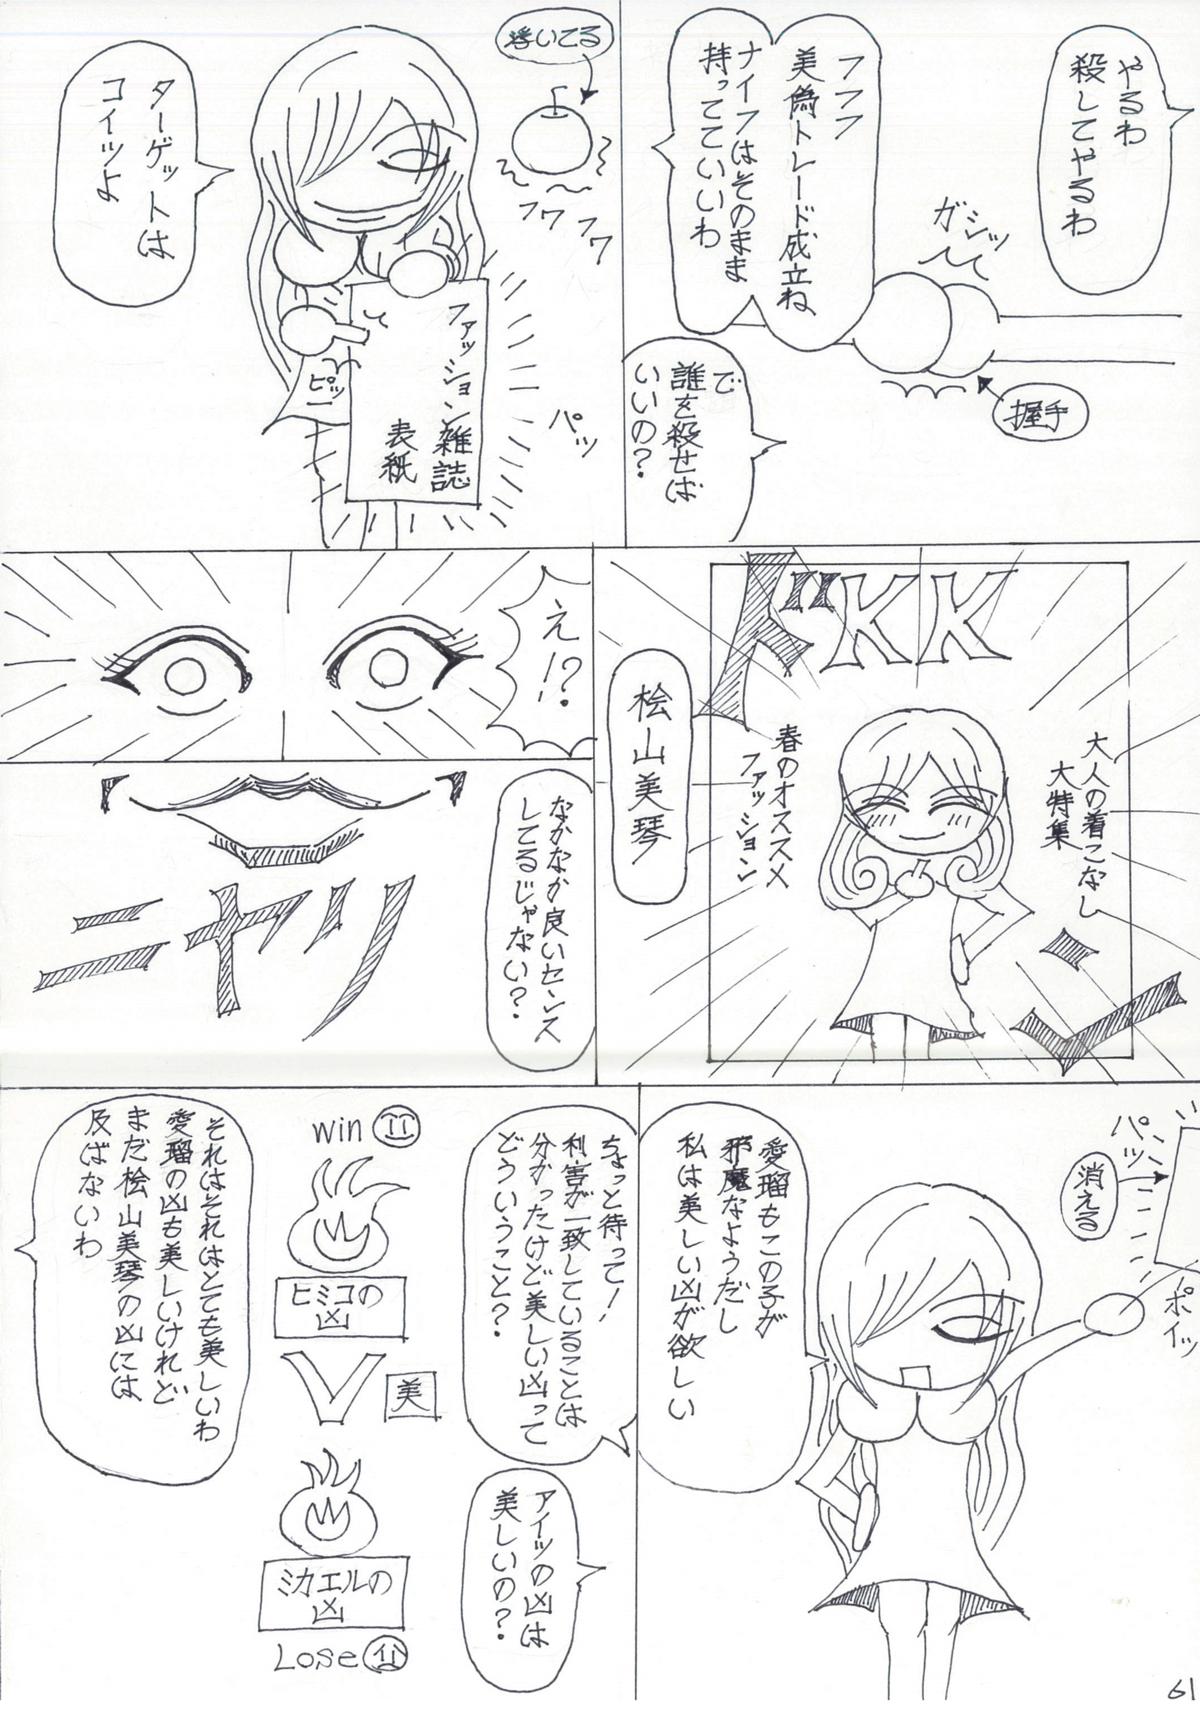 やるわ
殺してやるわ
ガシッ
握手
フフフ
美偽トレード成立ね
ナイフはそのまま
持ってていいわ
で
誰を殺せば
いいの?
浮いてる
フワフワ
ファッション雑誌
表紙
ピッ
パッ
ターゲットは
コイツよ
ドドド
大人の着こなし
大特集
春のオススメ
ファッション
桧山美琴
え!?
なかなか良いセンス
してるじゃない?
ニヤリ
パッ
消える
ポイッ
愛瑠もこの子が
邪魔なようだし
私は美しい凶が欲しい
ちょっと待って!
利害が一致していることは
分かったけど美しい凶って
どういうこと?
アイツの凶は
美しいの?
win
ヒミコの
凶
美
ミカエルの
凶
Lose
それはそれはとても美しいわ
愛瑠の凶も美しいけれど
まだ桧山美琴の凶には
及ばないわ
61